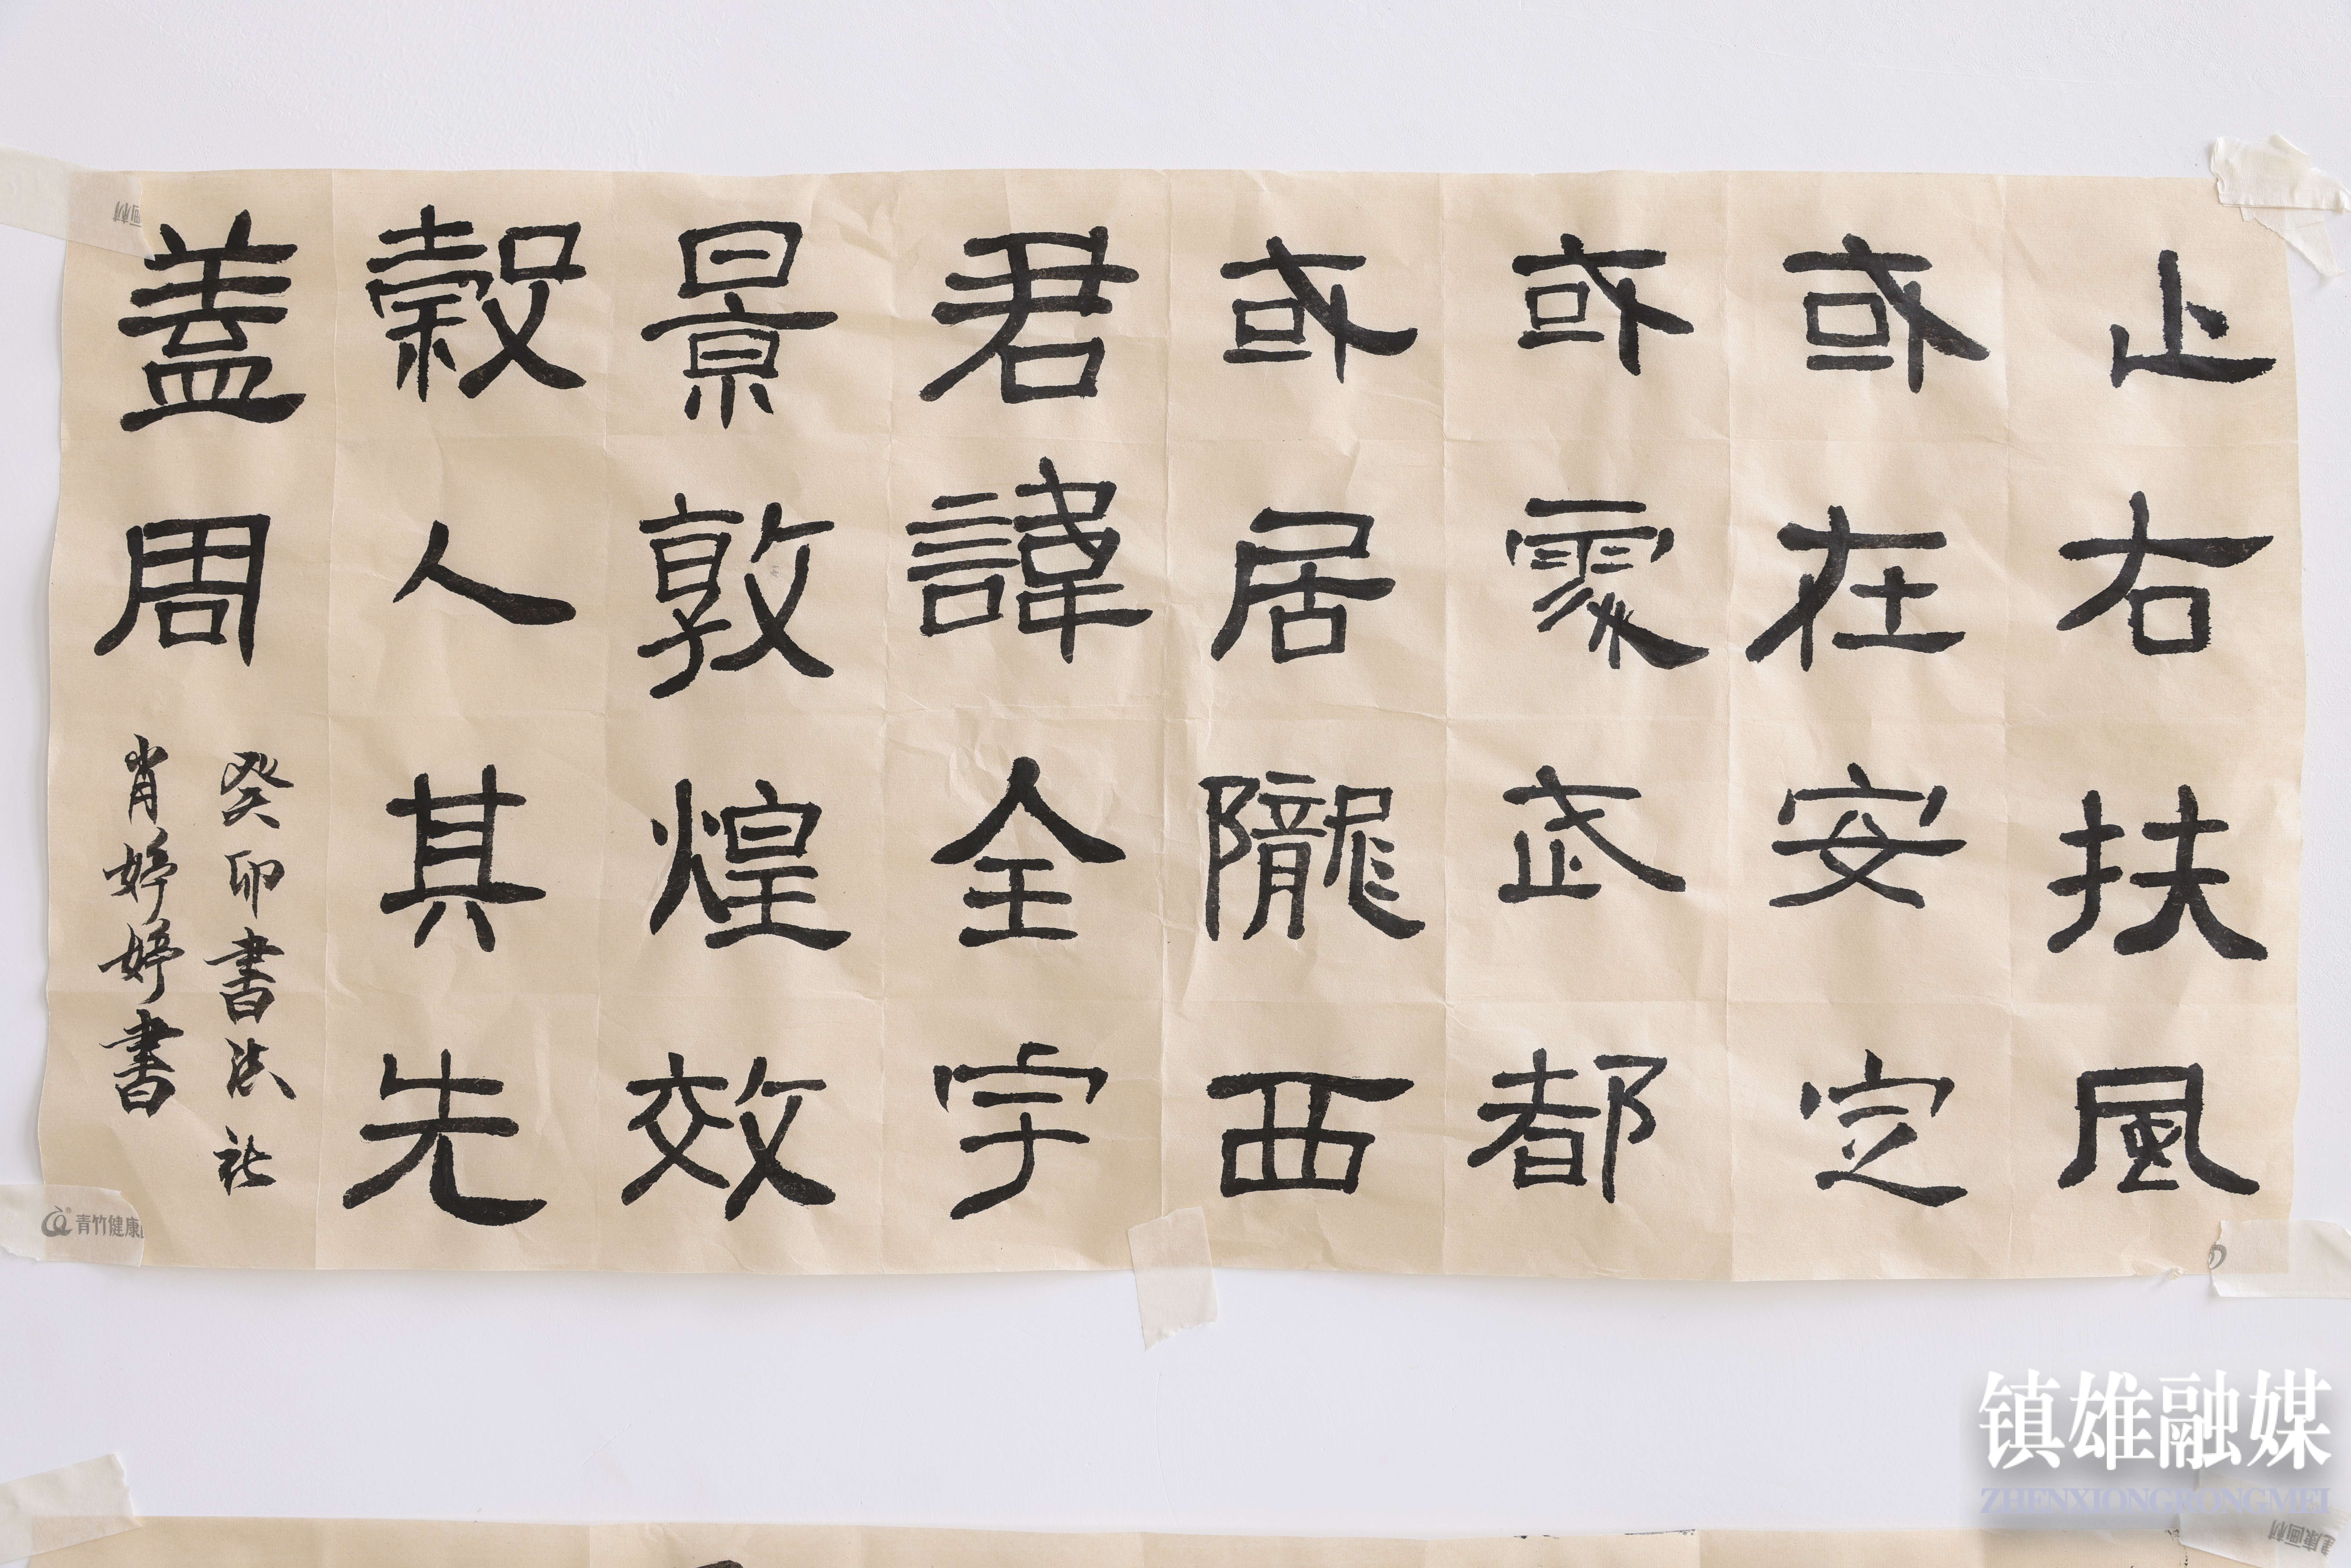 止右扶風
或在安定
或處武都
或居隴西
君諱全字
景敦煌效
穀人其先
盖周
癸卯書法社
肖婷婷書
青竹健康
镇雄融媒
ZHENXIONGRONGMEI